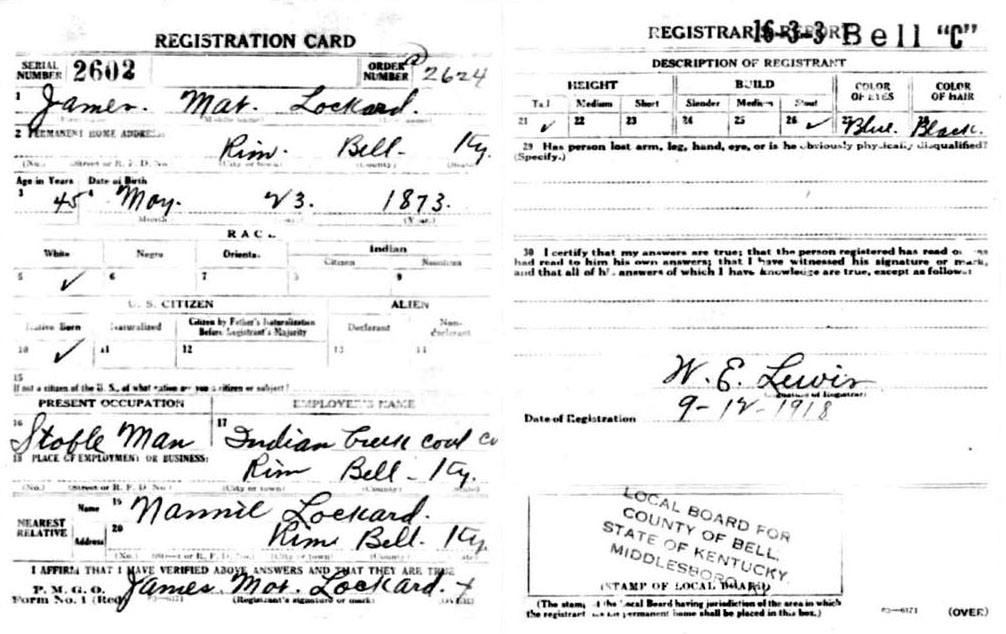 REGISTRATION CARD
SERIAL NUMBER 2602
ORDER NUMBER 2624
1 James. Mat. Lockard.
2 PERMANENT HOME ADDRESS:
Rim. Bell. Ky.
(No.) (Street or R. F. D. No.) (City or town) (County) (State)
Age in Years Date of Birth
3 45 4 May. 23. 1873.
Month (Year)
RACE
White Negro Oriental Indian
Citizen Noncitizen
5 ✓ 6 7 8 9
U. S. CITIZEN ALIEN
Native Born Naturalized Citizen by Father's Naturalization Before Registrant's Majority Declarant Non-declarant
10 ✓ 11 12 13 14
15
If not a citizen of the U. S., of what nation are you a citizen or subject?
PRESENT OCCUPATION EMPLOYER'S NAME
16 Stable Man 17 Indian Creek Coal Co
18 PLACE OF EMPLOYMENT OR BUSINESS:
Rim Bell - Ky.
(No.) (Street or R. F. D. No.) (City or town) (County) (State)
NEAREST RELATIVE
Name 19 Nannie Lockard.
Address 20 Rim Bell. Ky.
(No.) (Street or R. F. D. No.) (City or town) (County)
I AFFIRM THAT I HAVE VERIFIED ABOVE ANSWERS AND THAT THEY ARE TRUE
P. M. G. O.
Form No. 1 (Red) James Mat. Lockard. +
(Registrant's signature or mark) (OVER)
REGISTRAR'S REPORT 16-3-3 Bell "C"
DESCRIPTION OF REGISTRANT
HEIGHT BUILD COLOR OF EYES COLOR OF HAIR
Tall Medium Short Slender Medium Stout
21 ✓ 22 23 24 25 26 ✓ 27 Blue. Black.
29 Has person lost arm, leg, hand, eye, or is he obviously physically disqualified?
(Specify.)
30 I certify that my answers are true; that the person registered has read or has
had read to him his own answers; that I have witnessed his signature or mark,
and that all of his answers of which I have knowledge are true, except as follows:
W. E. Lewis
(Signature of Registrar)
Date of Registration 9-12-1918
LOCAL BOARD FOR
COUNTY OF BELL,
STATE OF KENTUCKY,
MIDDLESBORO, KY
(STAMP OF LOCAL BOARD)
(The stamp of the Local Board having jurisdiction of the area in which
the registrant has his permanent home shall be placed in this box.)
03-6171 (OVER)